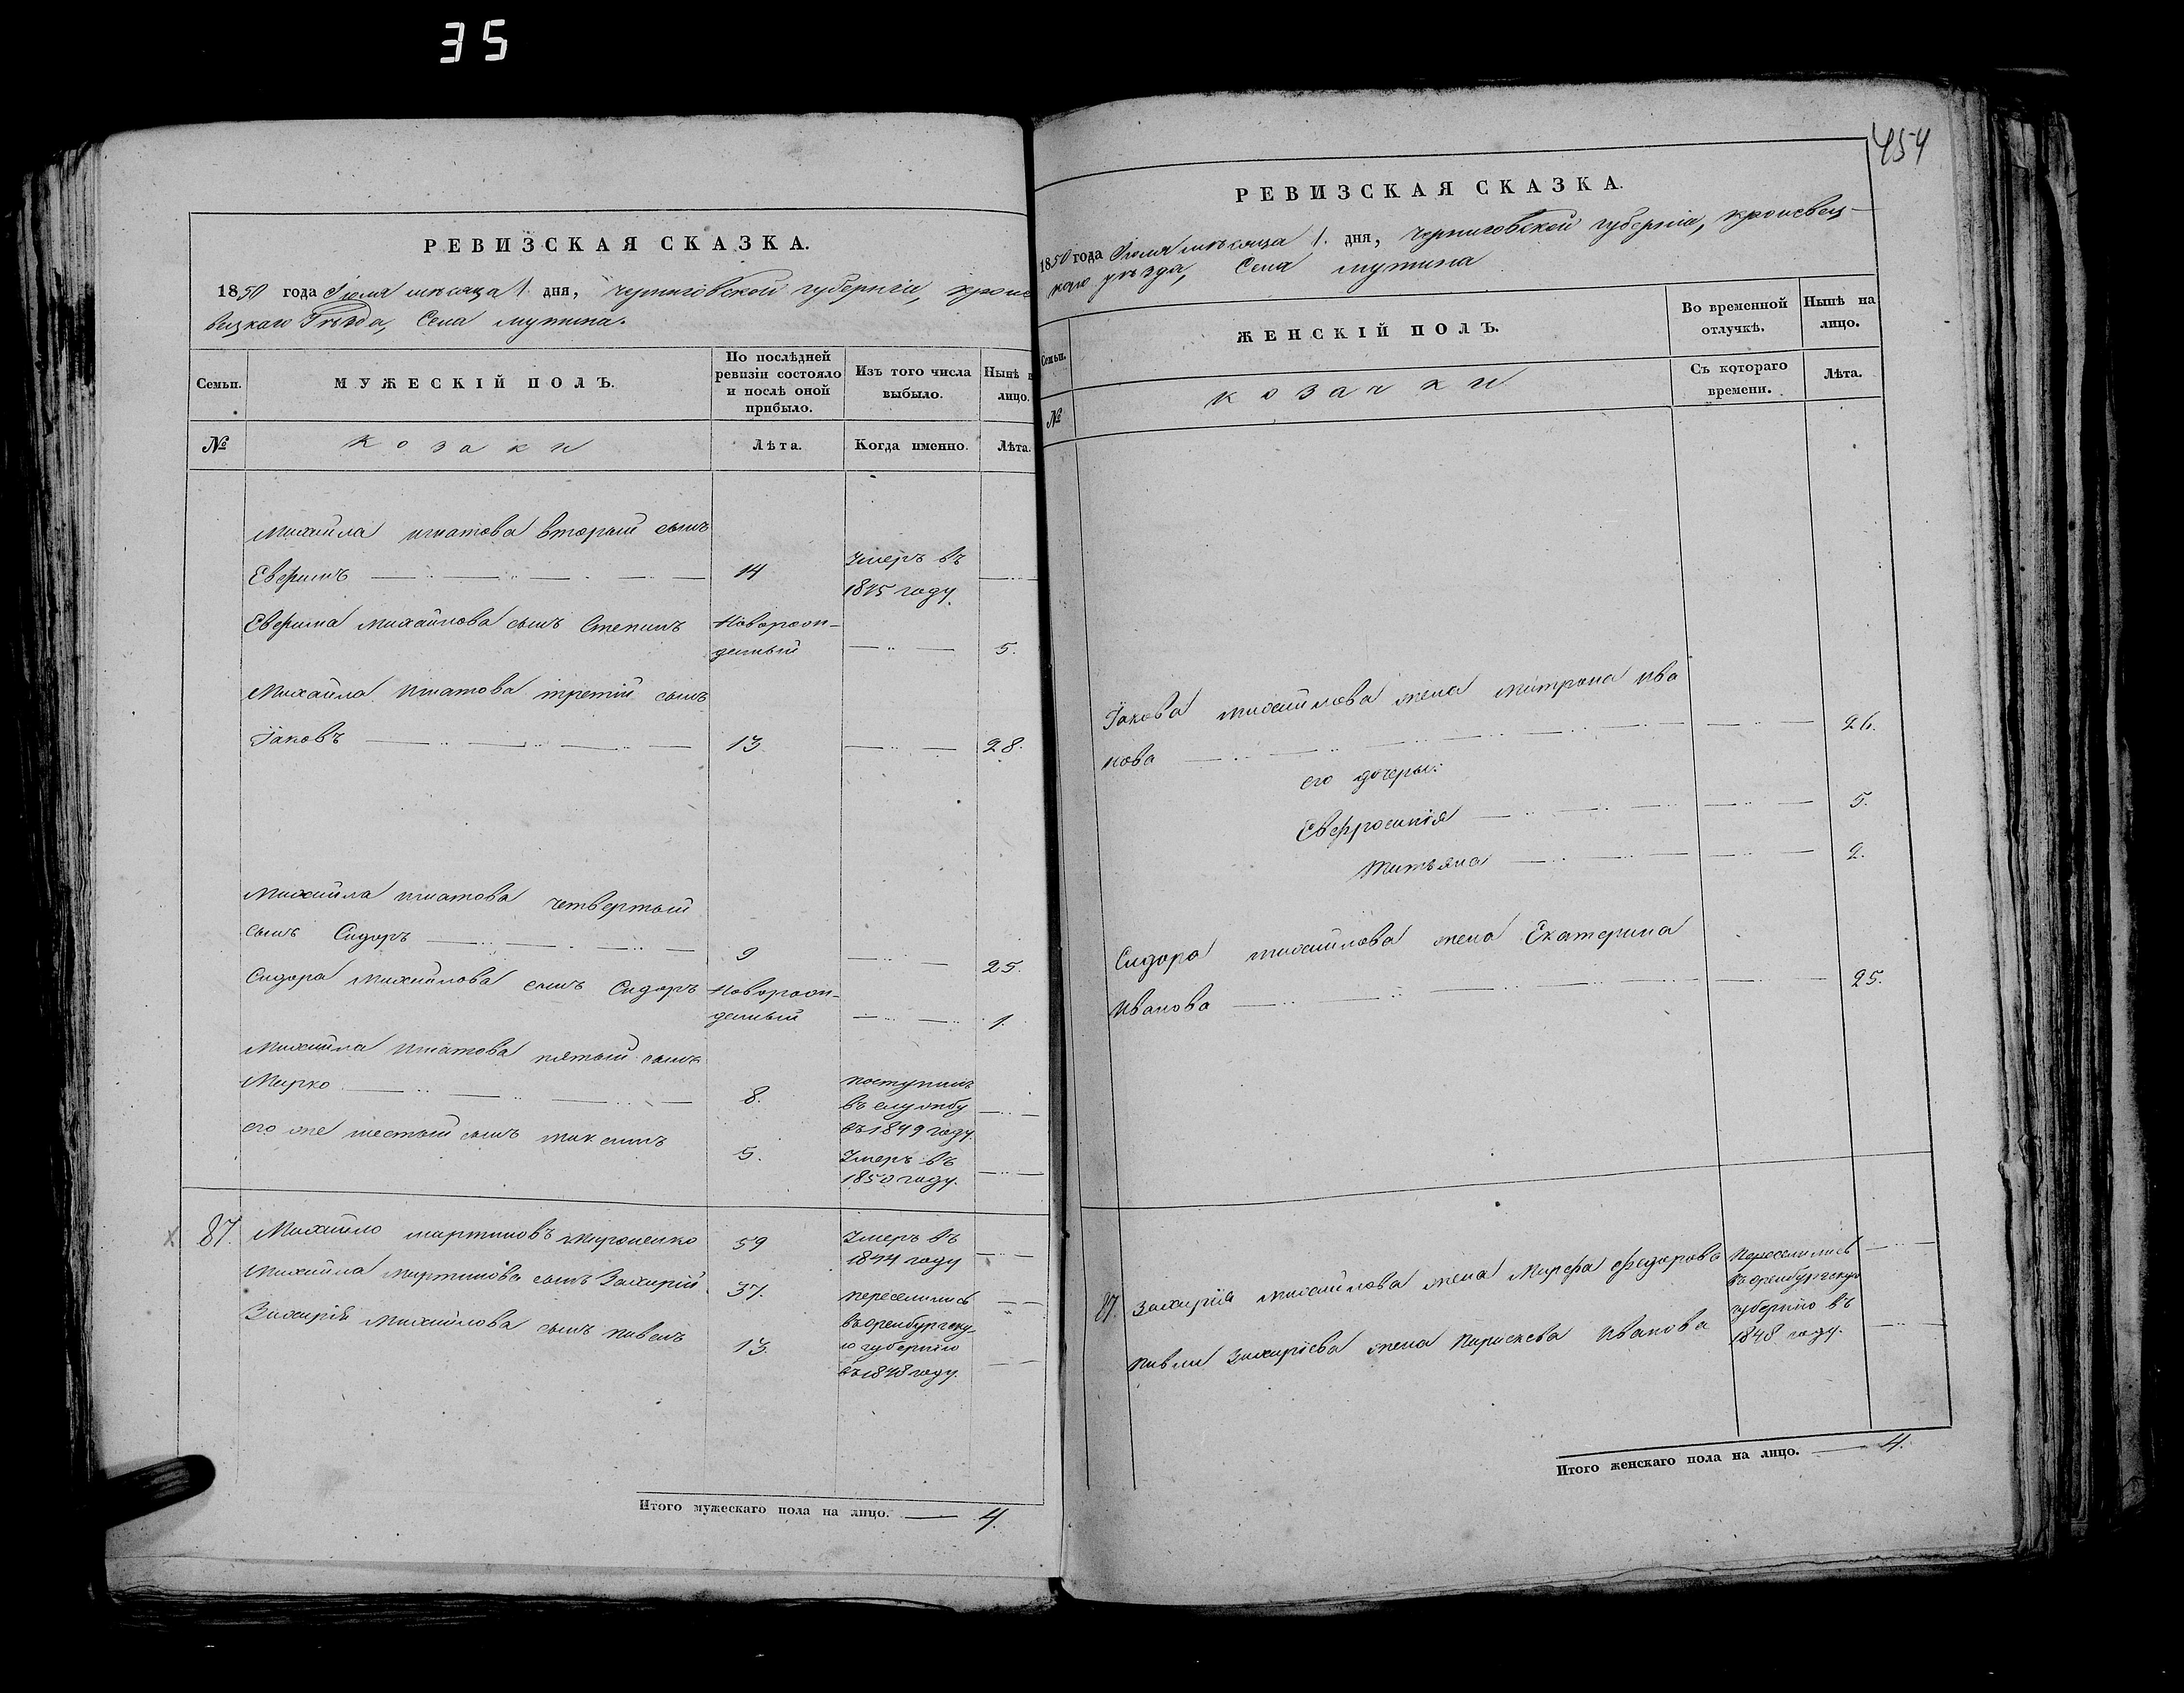 35
РЕВИЗСКАЯ СКАЗКА.
1850 года Іюля мѣсяца 1. дня, Черниговской губерніи, кроле
вецкаго Уѣзда, Села мутина.
Семьи.
МУЖЕСКІЙ ПОЛЪ.
По послѣдней
ревизіи состояло
и послѣ оной
прибыло.
Изъ того числа
выбыло.
Нынѣ
лицо.
№
козаки
Лѣта.
Когда именно.
Лѣта.
Михайла игнатова вторый сынъ
Ефримъ 14 Умеръ въ
1845 году.
Ефрима михайлова сынъ Степанъ Новорож-
денный 5.
Михайла игнатова третій сынъ
Іаковъ 13 28.
Михайла игнатова четвертый
сынъ Сидоръ 9 25.
Сидора михайлова сынъ Сидоръ Новорож-
денный 1.
Михайла игнатова пятый сынъ
Мирко 8. поступилъ
въ службу
въ 1849 году.
его же шестый сынъ максимъ 5. Умеръ въ
1850 году.
87. Михайло мартиновъ мироненко 59 Умеръ въ
1844 году
Михайла мартинова сынъ Захарій 37. переселились
въ оренбургску-
ю губернію
въ 1848 году.
Захарія михайлова сынъ павелъ 13.
Итого мужескаго пола на лицо. 4.
454
РЕВИЗСКАЯ СКАЗКА.
1850 года Іюля мѣсяца 1. дня, Черниговской губерніи, кролевец-
каго уѣзда, Села мутина
Семьи.
ЖЕНСКІЙ ПОЛЪ.
Во временной
отлучкѣ.
Нынѣ на
лицо.
№
козачки
Съ котораго
времени.
Лѣта.
Іакова михайлова жена матрона ива
нова 26.
его дочеры:
Евфросинія 5.
Татьяна 2.
Сидора михайлова жена Екатерина
Иванова 25.
87. Захарія михайлова жена Марфа федорова переселились
въ оренбургскую
губернію въ
1848 году.
павла Захаріева жена параскева Иванова
Итого женскаго пола на лицо. 4.